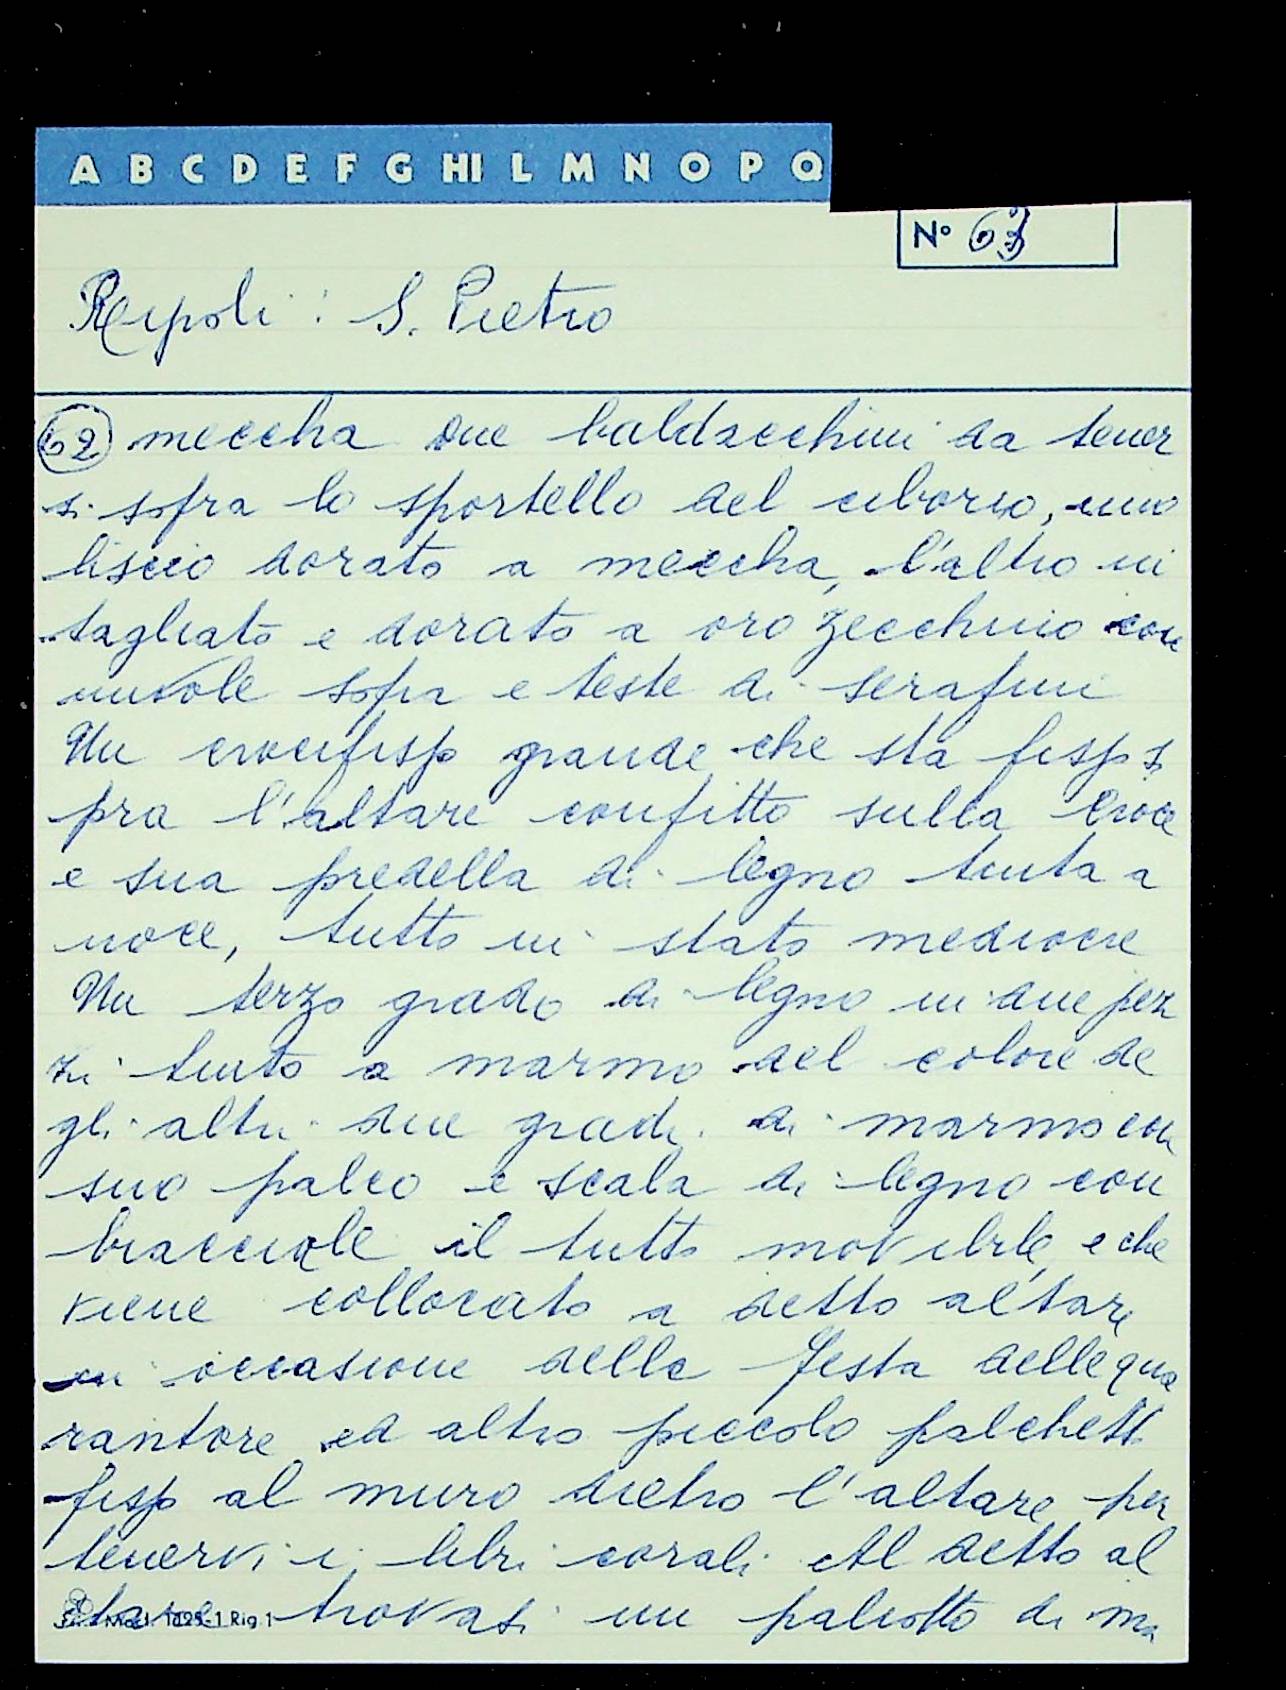 A B C D E F G HI L M N O P Q
N° 63
Ripoli: S. Pietro
62 meccha due baldacchini da tener
si sopra lo sportello del ciborio, uno
liscio dorato a meccha, l'altro in
tagliato e dorato a oro zecchino con
nuvole sopra e teste di serafini
Un crocifisso grande che sta fisso so
pra l'altare confitto sulla Croce
e sua predella di legno tinta a
noce, tutto in stato mediocre
Un terzo grado di legno in due pez
zi tinto a marmo del colore de
gli altri due gradi di marmo con
suo palco e scala di legno con
bracciole il tutto movibile, e che
viene collocato a detto altare
in occasione della festa delle qua
rantore ed altro piccolo palchett
fisso al muro dietro l'altare per
tenervi i libri corali Al detto al
tare trovasi un paliotto di ma
Mod. 1025-1 Rig. 1